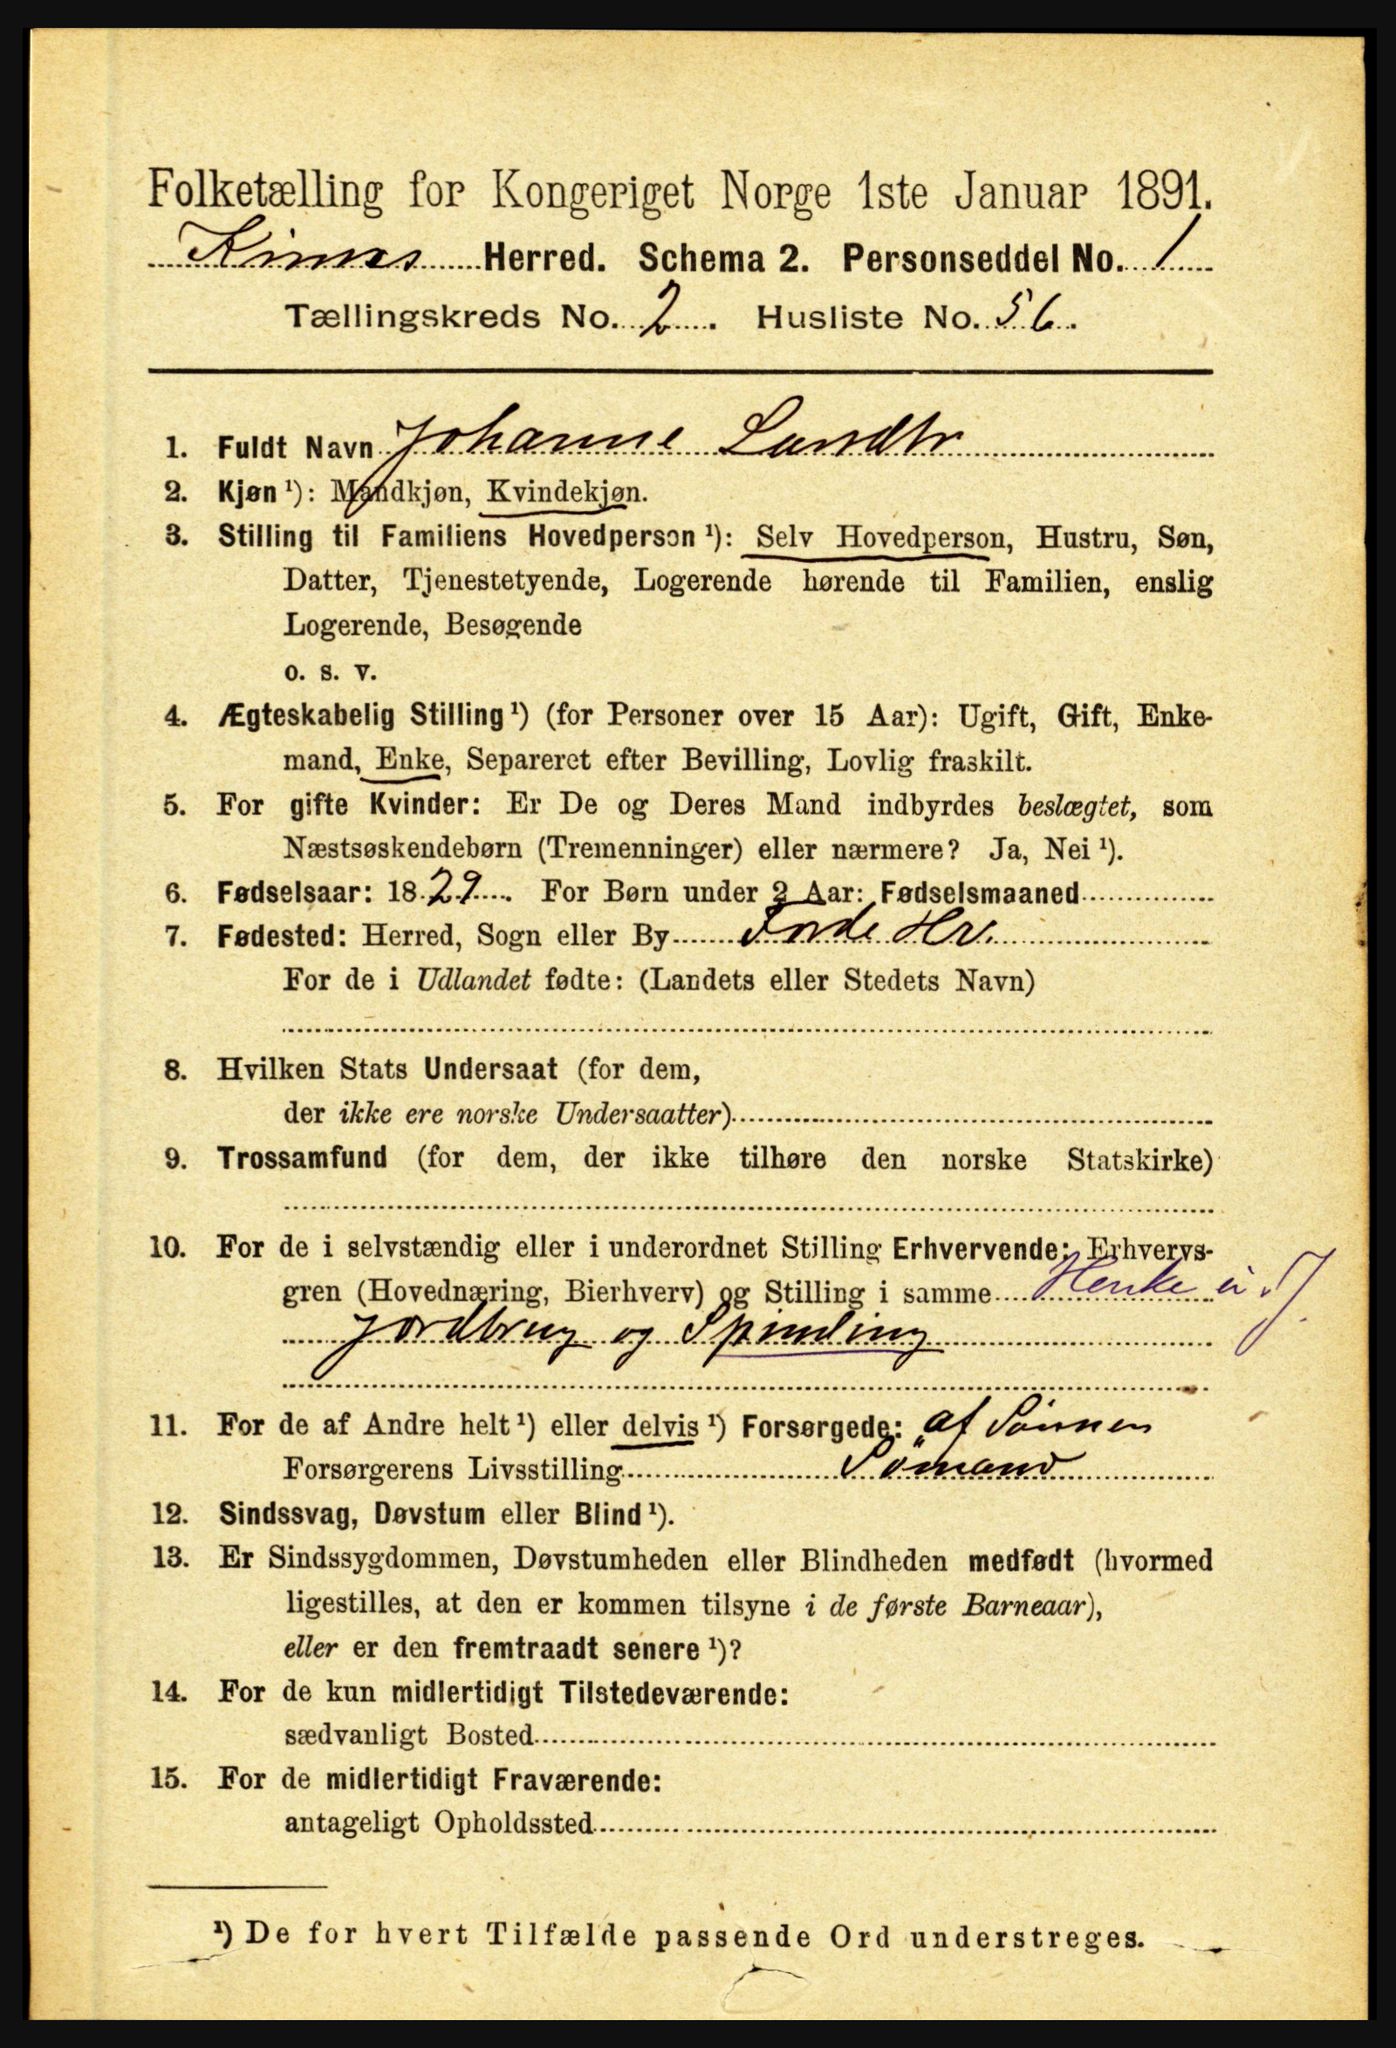 Folketælling for Kongeriget Norge 1ste Januar 1891.
Kinns Herred. Schema 2. Personseddel No. 1
Tællingskreds No. 2. Husliste No. 56.
1. Fuldt Navn Johanne
2. Kjøn ¹): Mandkjøn, Kvindekjøn.
3. Stilling til Familiens Hovedperson ¹): Selv Hovedperson, Hustru, Søn,
Datter, Tjenestetyende, Logerende hørende til Familien, enslig
Logerende, Besøgende
o. s. v.
4. Ægteskabelig Stilling ¹) (for Personer over 15 Aar): Ugift, Gift, Enke-
mand, Enke, Separeret efter Bevilling, Lovlig fraskilt.
5. For gifte Kvinder: Er De og Deres Mand indbyrdes beslægtet, som
Næstsøskendebørn (Tremenninger) eller nærmere? Ja, Nei ¹).
6. Fødselsaar: 1829. For Børn under 2 Aar: Fødselsmaaned
7. Fødested: Herred, Sogn eller By Førde Hr.
For de i Udlandet fødte: (Landets eller Stedets Navn)
8. Hvilken Stats Undersaat (for dem,
der ikke ere norske Undersaatter)
9. Trossamfund (for dem, der ikke tilhøre den norske Statskirke)
10. For de i selvstændig eller i underordnet Stilling Erhvervende: Erhvervs-
gren (Hovednæring, Bierhverv) og Stilling i samme
Jordbrug og Spinding
11. For de af Andre helt ¹) eller delvis ¹) Forsørgede: af Sönnen
Forsørgerens Livsstilling Sömand
12. Sindssvag, Døvstum eller Blind ¹).
13. Er Sindssygdommen, Døvstumheden eller Blindheden medfødt (hvormed
ligestilles, at den er kommen tilsyne i de første Barneaar),
eller er den fremtraadt senere ¹)?
14. For de kun midlertidigt Tilstedeværende:
sædvanligt Bosted
15. For de midlertidigt Fraværende:
antageligt Opholdssted
¹) De for hvert Tilfælde passende Ord understreges.